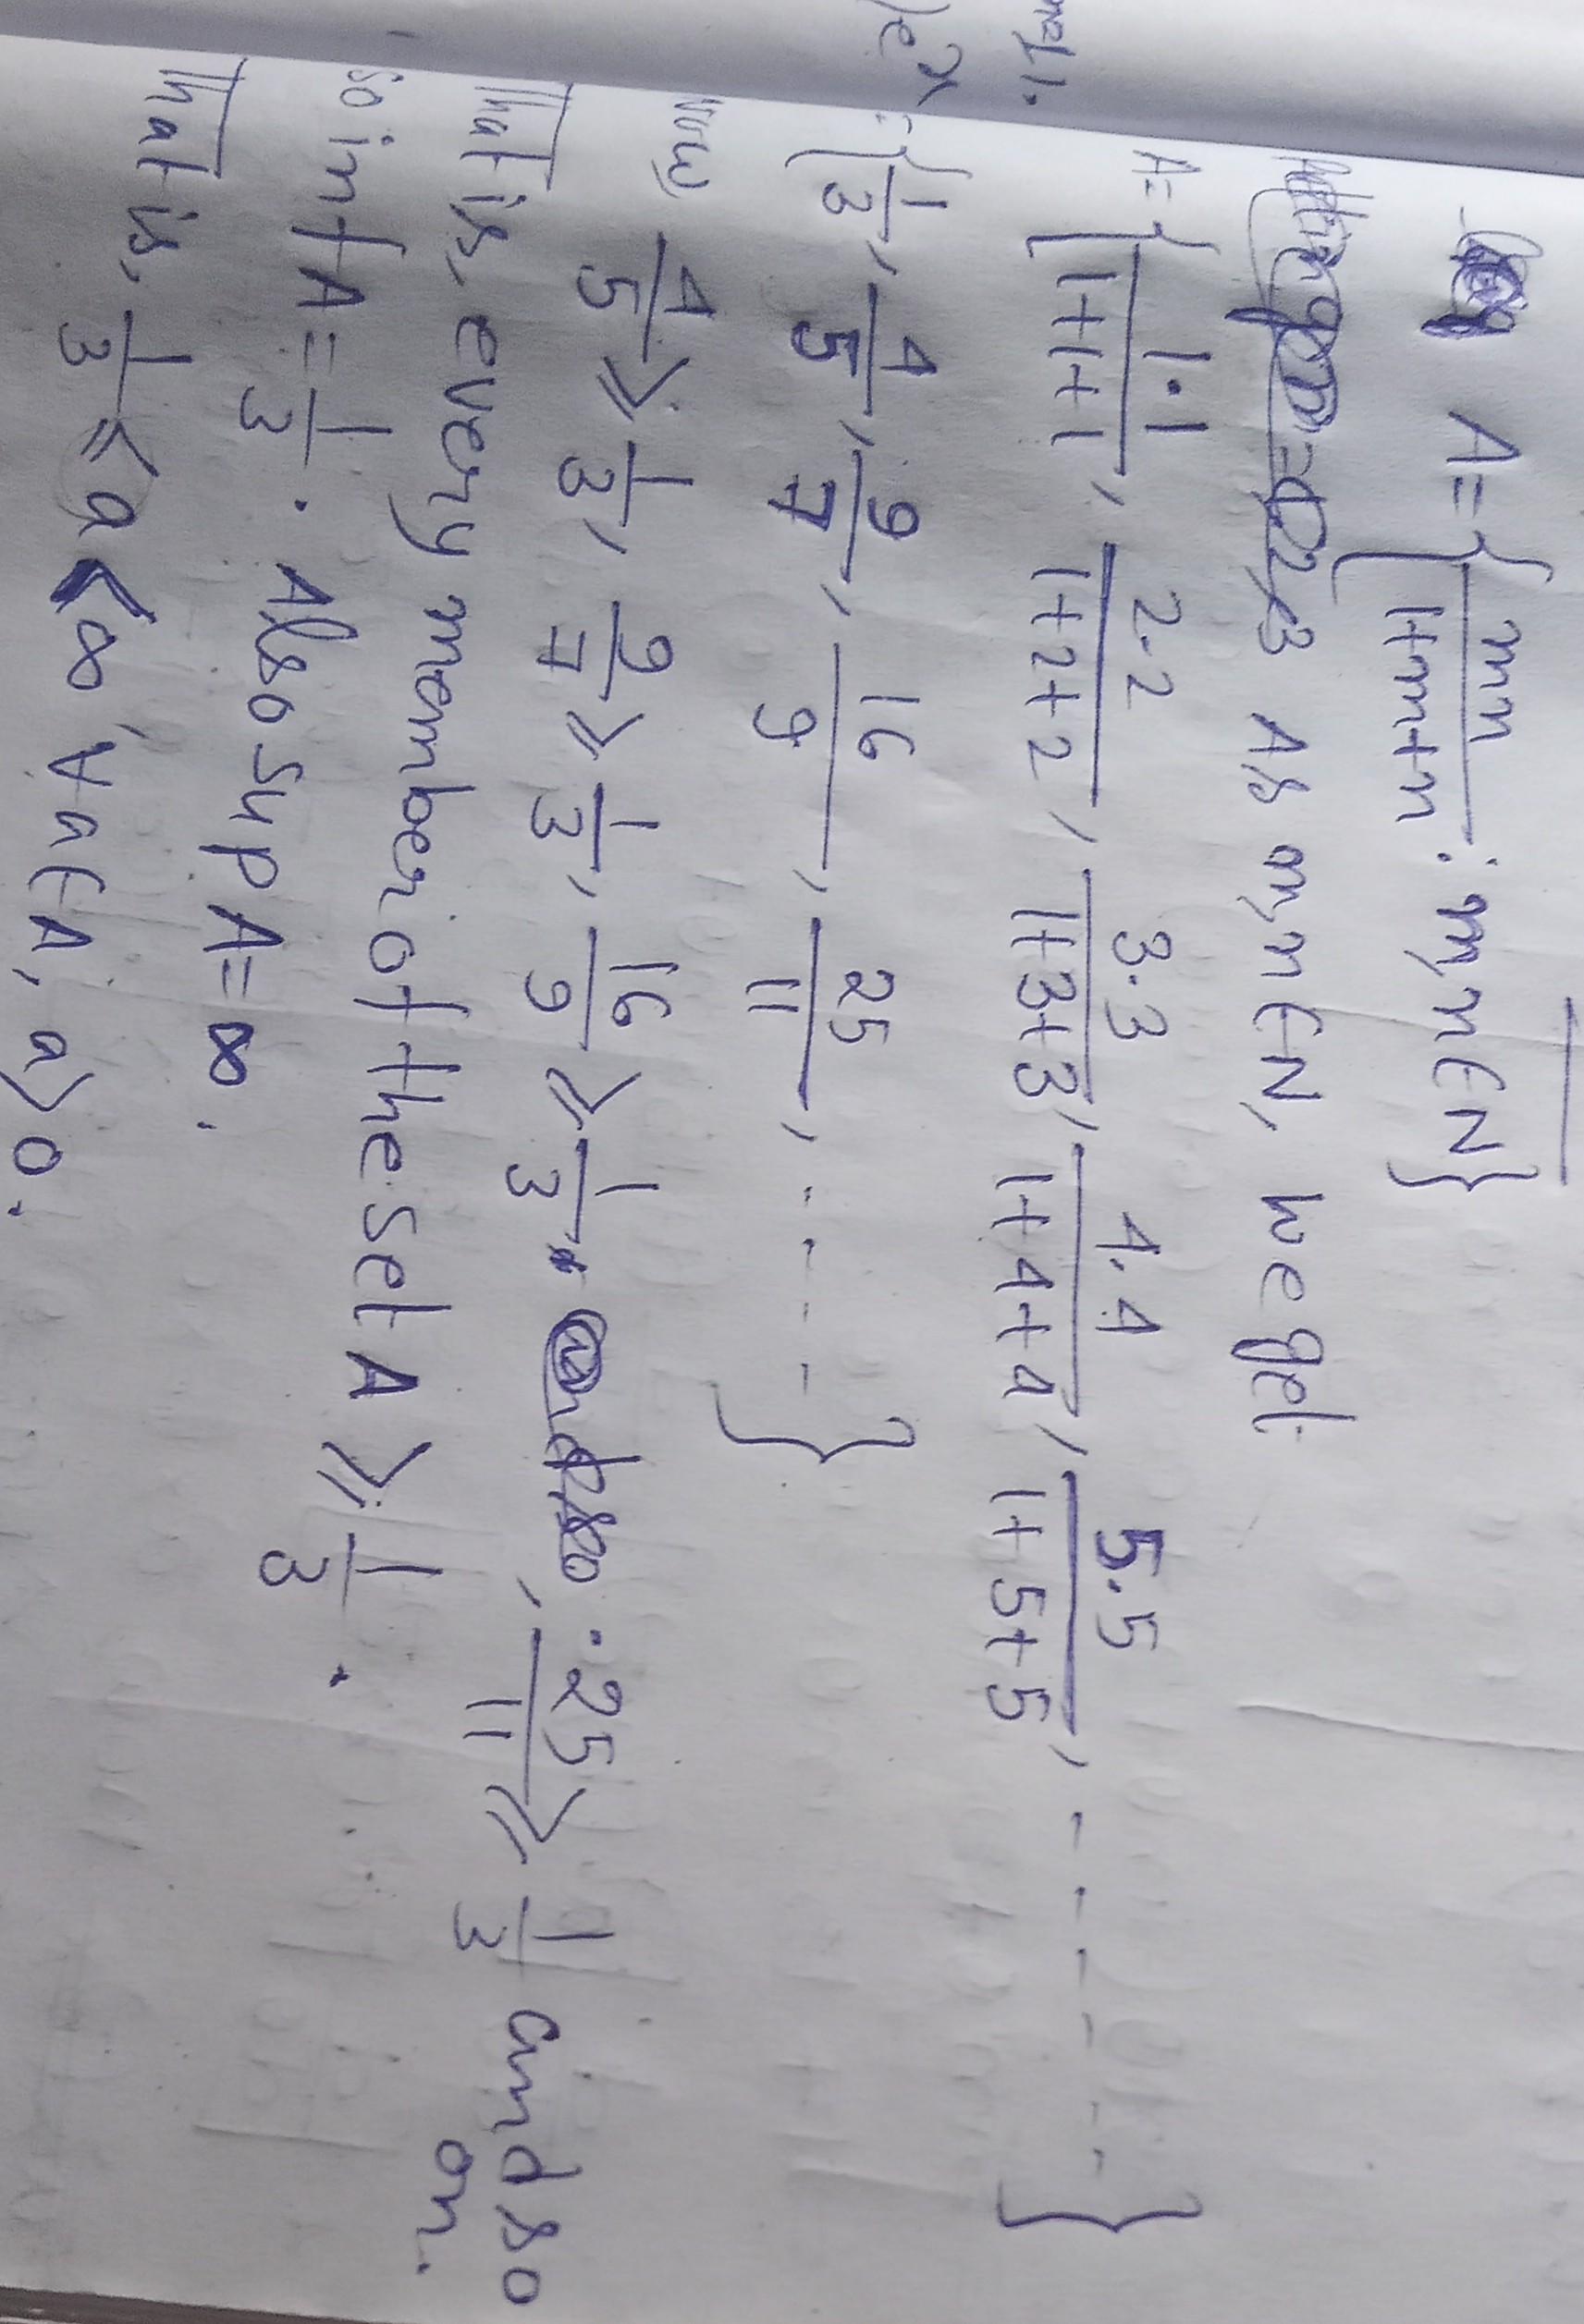 A = { mn / 1+m+n : m,n ∈ N }
As m,n ∈ N, we get
A = { 1·1 / 1+1+1 , 2·2 / 1+2+2 , 3·3 / 1+3+3 , 4·4 / 1+4+4 , 5·5 / 1+5+5 , ----- }
= { 1/3 , 4/5 , 9/7 , 16/9 , 25/11 , ---- }
Now, 4/5 ⩾ 1/3, 9/7 ⩾ 1/3, 16/9 ⩾ 1/3, 25/11 ⩾ 1/3 and so on.
That is, every member of the set A ⩾ 1/3.
So inf A = 1/3. Also sup A = ∞.
That is, 1/3 ⩽ a < ∞ ∀ a ∈ A, a > 0.